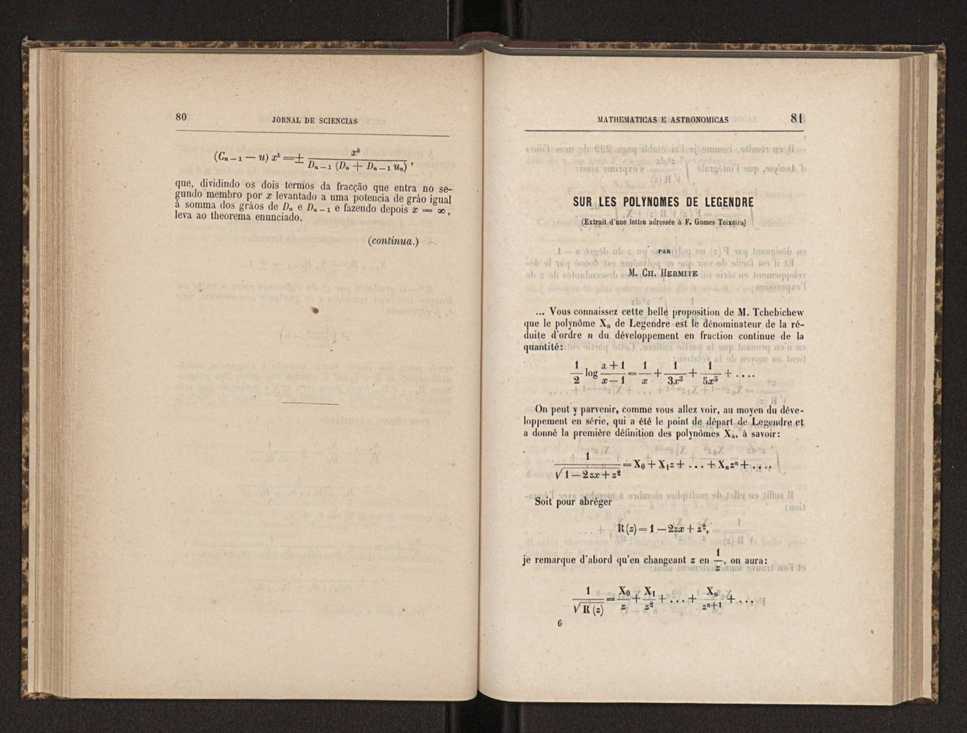 80
JORNAL DE SCIENCIAS
(Cₙ₋₁ — u) xᵏ = ± xᵏ / Dₙ₋₁ (Dₙ + Dₙ₋₁ uₙ) ,
que, dividindo os dois termos da fracção que entra no se-
gundo membro por x levantado a uma potencia de gráo igual
á somma dos gráos de Dₙ e Dₙ₋₁ e fazendo depois x = ∞,
leva ao theorema enunciado.
(continua.)
MATHEMATICAS E ASTRONOMICAS
81
SUR LES POLYNOMES DE LEGENDRE
(Extrait d'une lettre adressée à F. Gomes Teixeira)
PAR
M. CH. HERMITE
... Vous connaissez cette belle proposition de M. Tchebichew
que le polynôme Xₙ de Legendre est le dénominateur de la ré-
duite d'ordre n du développement en fraction continue de la
quantité:
1/2 log x + 1 / x — 1 = 1/x + 1/3x³ + 1/5x⁵ + ....
On peut y parvenir, comme vous allez voir, au moyen du déve-
loppement en série, qui a été le point de départ de Legendre et
a donné la première définition des polynômes Xₙ, à savoir:
1 / √1 — 2zx + z² = X₀ + X₁z + ... + Xₙzⁿ + ....
Soit pour abréger
R (z) = 1 — 2zx + z²,
je remarque d'abord qu'en changeant z en 1/z, on aura:
1 / √R (z) = X₀/z + X₁/z² + ... + Xₙ/zⁿ⁺¹ + ...
6